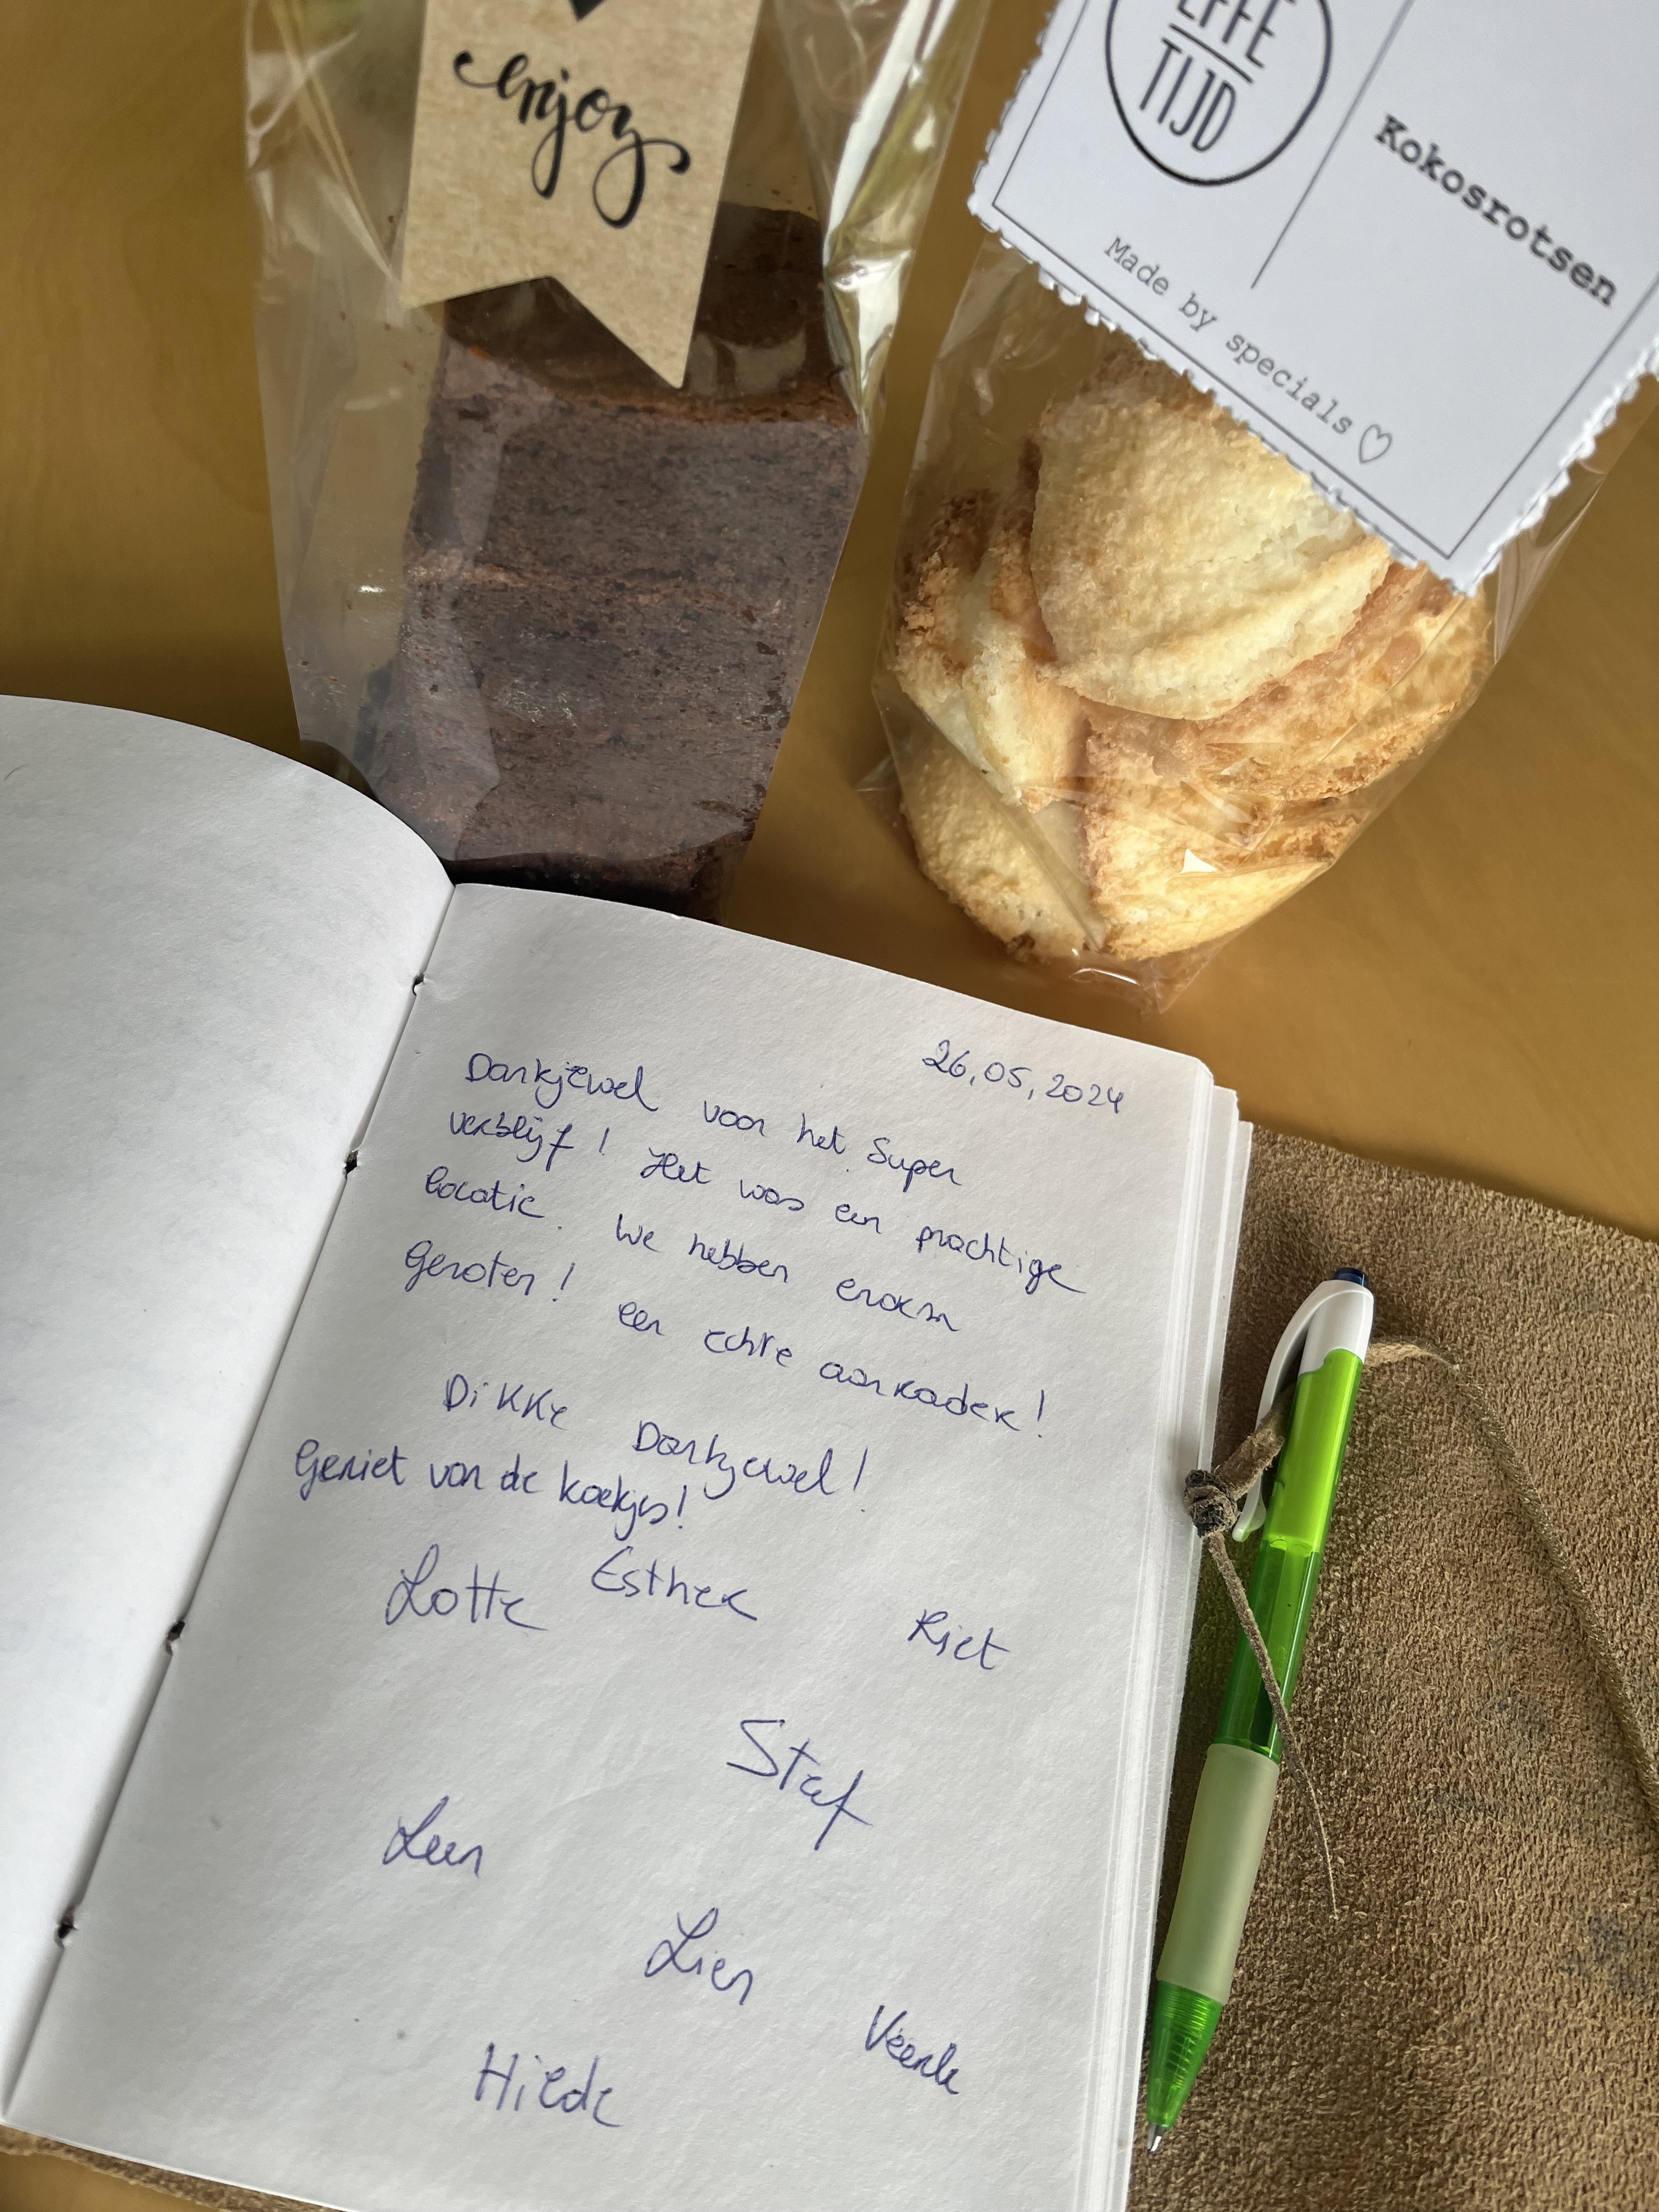 enjoy
EFFE
TIJD
Kokosrotsen
Made by specials ♡
26.05.2024
Dankjewel voor het super
verblijf! Het was een prachtige
locatie. We hebben enorm
genoten! Een echte aanrader!
Dikke Dankjewel!
Geniet van de koekjes!
Lotte Esther Riet
Staf
Leen
Lien
Veerle
Hilde